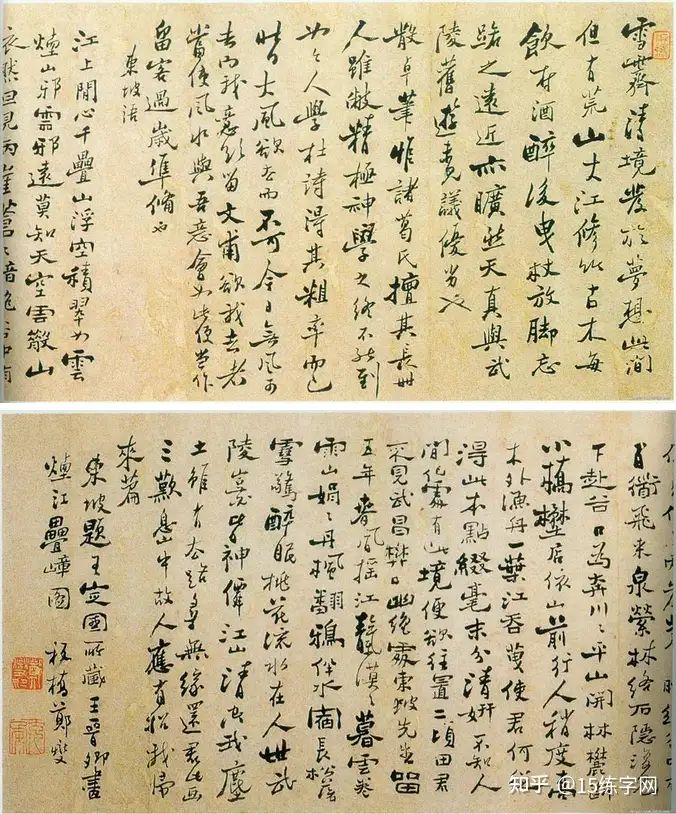 雪齋清境發於夢想此間
但有荒山大江修竹古木每
飲村酒醉後曳杖放脚忘
路之遠近亦曠然天真與武
陵舊遊未議優劣也
散卓筆惟諸葛氏擅其長世
人雖敝精極神學之終不能到
如今人學杜詩得其粗率而已
昔大風欲去而不可今日無風可
去而我意欲留文甫欲我去者
當使風水與吾意會如此便當作
留客過歲準備也
東坡語
江上閒心千疊山浮空積翠如雲
煙山邪雲邪遠莫知天空雲散山
依然但見兩崖蒼〻暗絕谷中有
百衜飛來泉縈林絡石隱復
下赴谷口為奔川〻平山開林麓斷
小橋壄店依山前行人稍度喬
木外漁舟一葉江吞靝使君何從
得此本點綴毫末分清妍不知人
間何處有此境便欲往置二頃田君
不見武昌樊口幽絕處東坡先生留
五年春風搖江靝漠〻暮雲卷
雨山娟〻丹楓翻鴉伴水宿長松落
雪驚醉眠桃花流水在人世武
陵豈必皆神僊江山清空我塵
土雖有去路尋無緣還君此畫
三歎息山中故人應有招我歸
來篇
東坡題王定國所藏王晉卿畫
煙江疊嶂圖 板橋鄭燮
知乎 @15练字网